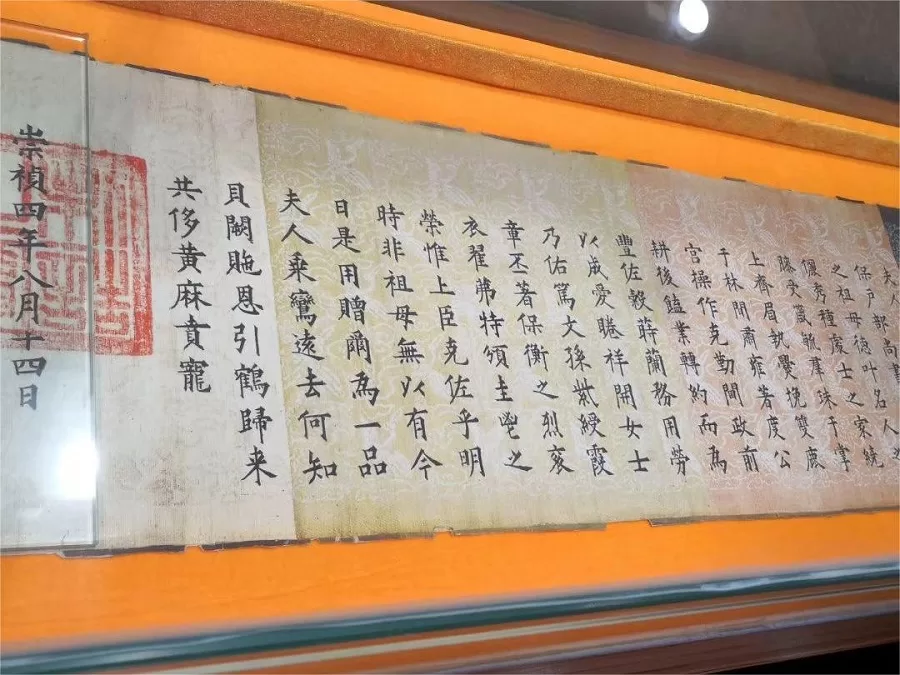 夫人部尚書
保戸母德叶名人之
之祖母
儷秀種度士之家統
勝受箴報羣珠于掌
上齊眉執爨挽雙鹿
于林間肅雍著度公
宫操作克勤閫政前
耕後饁業轉約而為
豐佐穀蒔蘭務用勞
以成愛勝祥開女士
乃佑篤文孫紫綬霞
章丕著保衡之烈褎
衣翟茀特頒圭鬯之
榮惟上臣克佐乎明
時非祖母無以有今
日是用贈爾為一品
夫人乘鸞遠去何知
貝闕貤恩引鶴歸来
共侈黄麻賁寵
崇禎四年八月十四日